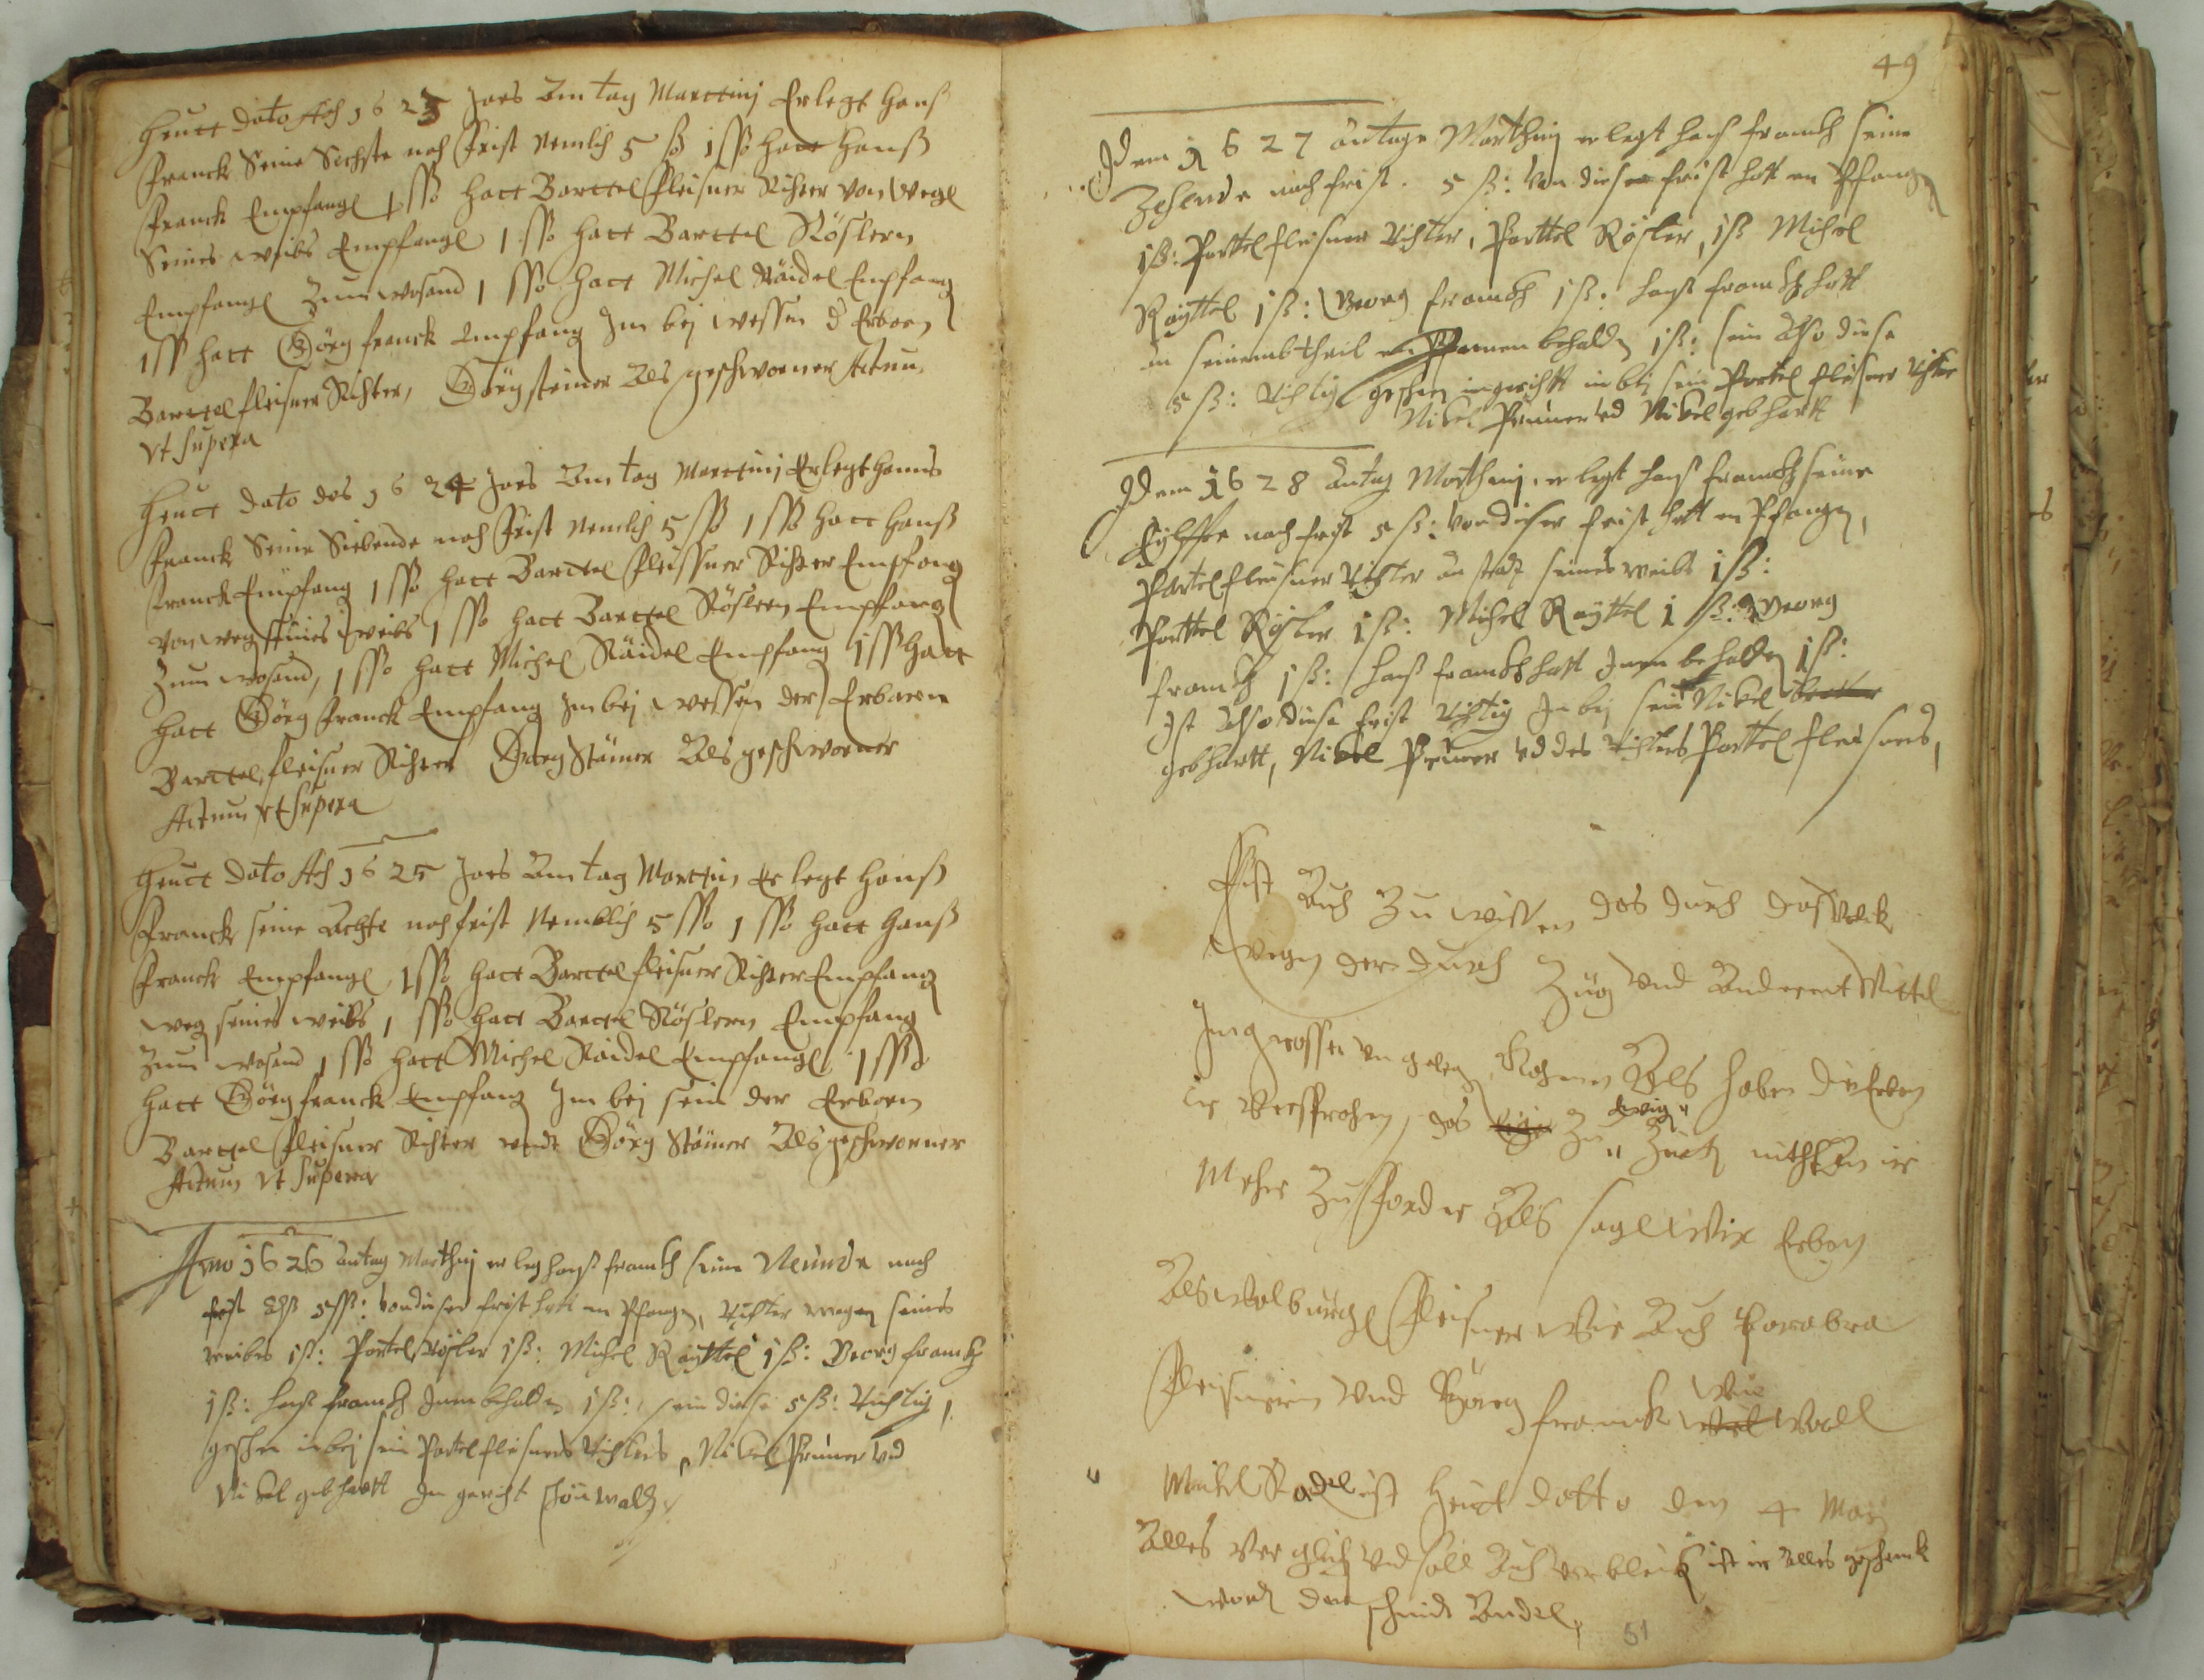 Heutt dato Ach 1623 Jars Am tag Marttinj Erlegt Hanß
Franck Seine Sechste nach Frist Nemlich 5 ßo 1 ßo hatt Hanß
Franck Empfangen 1 ßo hatt Barttel Fleisner Richter von wegen
Seines weibs Empfangen 1 ßo hatt Barttel Röslern
Empfangen Zum 1 ßo hatt Michel Räidel Empfang
1 ßo hatt Görg Franck Empfang Im bej wessen d Erbarn
Barttel Fleisner Richter, Görg steiner Als geschworner Actum
vt Supera
Heutt dato das 1624 Jars Am tag Marttinj Erlegt Hanns
Franck Seine Siebende nach Frist Nemlich 5 ßo 1 ßo hatt Hanß
Franck Empfang 1 ßo hatt Barttel Fleissner Richter Empfang
von weg seines weibs 1 ßo hatt Barttel Röslern Empfang
Zum 1 ßo hatt Michel Räidel Empfang 1 ßo hatt
hatt Görg Franck Empfang Im bej wessen der Erbaren
Barttel Fleisner Richter Görg Stäiner Als geschworner
Actum vt Supera
Heutt dato Ach 1625 Jars Am tag Marttin Erlegt Hanß
Franck seine Achte nach frist Nemblich 5 ßo 1 ßo hatt Hanß
Franck Empfangen 1 ßo hatt Barttel fleisner Richter Empfang
weg seines weibs 1 ßo hatt Barttel Röslern Empfang
Zum 1 ßo hatt Michel Räidel Empfangen 1 ßo
hatt Görg franck Empfang Im bej sein der Erbarn
Barttel Fleisner Richter vndt Görg Stäiner Als geschworner
Actum vt Supera
Anno 1626 antag Marthinj erleg Hanß franckh seine Neunde nach
frist 5 ß: von dieser frist hatt empfangen, Richter wegen seines
weibes 1 ß: Portel Rösler 1 ß: Michel Rayttel 1 ß: Georg franckh
1 ß: Hanß franckh Innen behalden 1 ß: sein diese 5 ß: Richtig,
geschen in bej sein Portel fleisners Richters, Nikel Prüner vnd
Nikel gebhartt In gericht schönwaldt
49
Idem 1627 antage Marthinj erlegt Hanß franckh seine
Zehende nach frist. 5 ß: Von dieser frist hatt empfangen
1 ß: Porttel fleisner Richter, Porttel Rösler, 1 ß Michel
Rayttel 1 ß: Georg franckh 1 ß: Hanß franckh hatt
an seinemb theil Innen behalden 1 ß: sein Also diese
5 ß: Richtig geschen in gericht in bej sein Portel fleisner Richter
Nikel Prüner vnd Nikel gebhartt
Idem 1628 antag Marthinj erlegt Hanß franckh seine
Eylffte nach frist 5 ß: Von dieser frist hatt empfangen,
Portel fleisner Richter an stadt seines weibs 1 ß:
Porttel Rösler 1 ß: Michel Rayttel 1 ß: Georg
franckh 1 ß: Hanß franckh hatt Innen behalden 1 ß:
Ist Also diese frist Richtig In bej sein Nikel
gebhartt, Nikel Prüner vnd des Richters Porttel fleisners,
Ist Auch Zu wissen das durch das
wegen der durch Züg vnd Anderent Mittel
Im grossen Als haben die Erben
ir Versprochen, das Ewig Zu nichts An ir
Mehr Zu fordern Als sagen wir Erben
Als Walburgen Fleisner wie Auch Barabra
Fleisnerin vnd Görg franck wie woll
Michl Radel ist heut datto den 4 May
Alles verglich vnd soll Auch verbleiben ist ir Alles geschenck
word den schmidt Andel
51